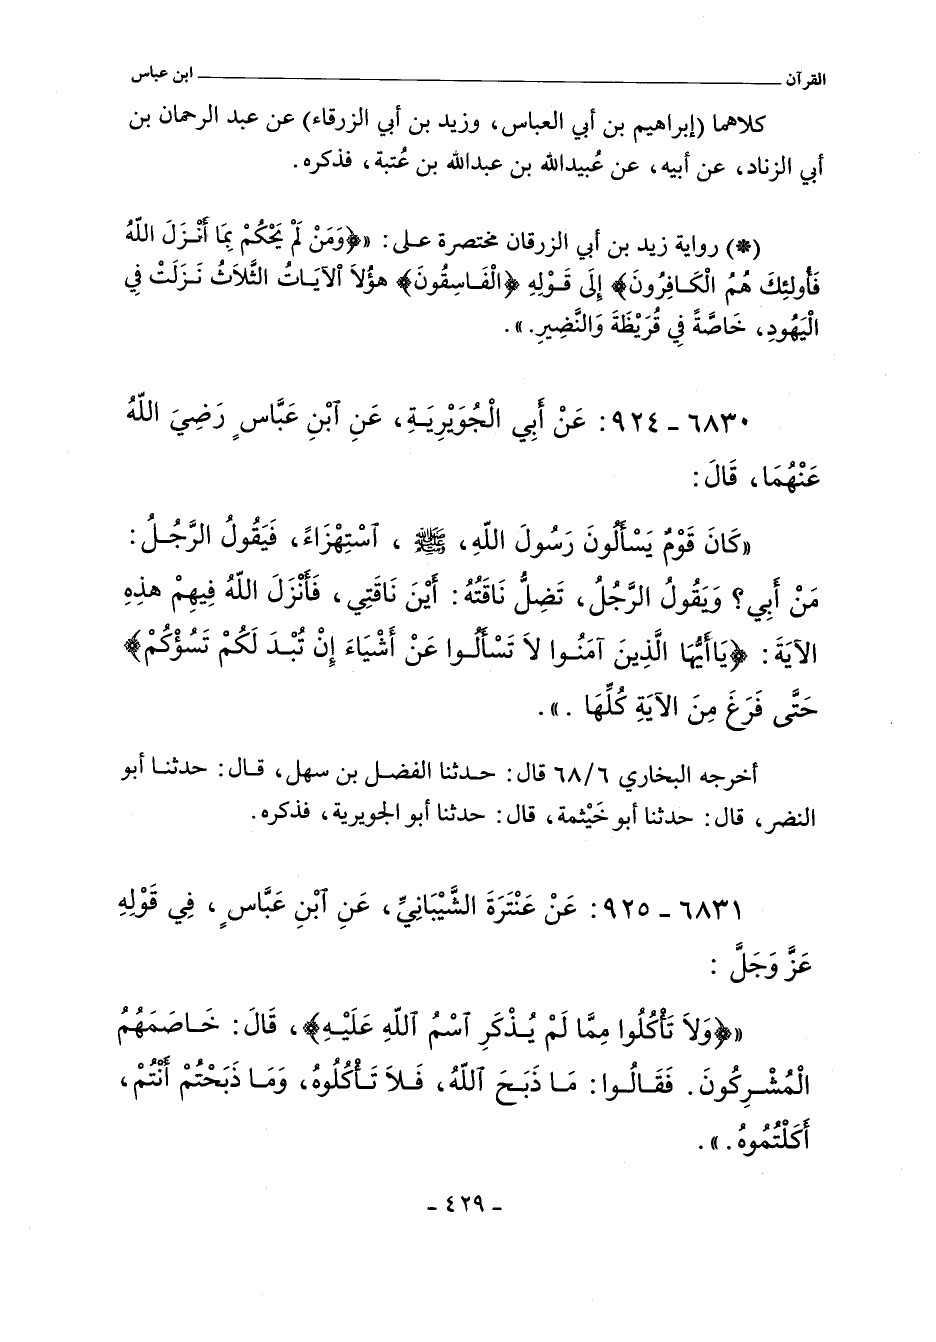 القرآن ــــــــــــــــــــــــــــــــــــــــ ابن عباس
كلاهما (إبراهيم بن أبي العباس، وزيد بن أبي الزرقاء) عن عبد الرحمان بن
أبي الزناد، عن أبيه، عن عُبيدالله بن عبدالله بن عُتبة، فذكره.
(*) رواية زيد بن أبي الزرقان مختصرة على: «﴿وَمَنْ لَمْ يَحْكُمْ بِمَا أَنْزَلَ اللّهُ
فَأُولئِكَ هُمُ الْكَافِرُونَ﴾ إِلَى قَوْلِهِ ﴿الْفَاسِقُونَ﴾ هؤُلاَ ٱلآيَاتُ الثَّلاَثُ نَزَلَتْ فِي
الْيَهُودِ، خَاصَّةً فِي قُرَيْظَةَ وَالنَّضِيرِ.».
٦٨٣٠ - ٩٢٤: عَنْ أَبِي الْجُوَيْرِيَةِ، عَنِ ٱبْنِ عَبَّاسٍ رَضِيَ اللّهُ
عَنْهُمَا، قَالَ:
«كَانَ قَوْمٌ يَسْأَلُونَ رَسُولَ اللّهِ، ﷺ ، ٱسْتِهْزَاءً، فَيَقُولُ الرَّجُلُ:
مَنْ أَبِي؟ وَيَقُولُ الرَّجُلُ، تَضِلُّ نَاقَتُهُ: أَيْنَ نَاقَتِي، فَأَنْزَلَ اللّهُ فِيهِمْ هذِهِ
الآيَةَ: ﴿يَاأَيُّهَا الَّذِينَ آمَنُوا لاَ تَسْأَلُوا عَنْ أَشْيَاءَ إِنْ تُبْدَ لَكُمْ تَسُؤْكُمْ﴾
حَتَّى فَرَغَ مِنَ الآيَةِ كُلِّهَا .».
أخرجه البخاري ٦٨/٦ قال: حدثنا الفضل بن سهل، قال: حدثنا أبو
النضر، قال: حدثنا أبو خَيْثمة، قال: حدثنا أبو الجويرية، فذكره.
٦٨٣١ - ٩٢٥: عَنْ عَنْتَرَةَ الشَّيْبَانِيِّ، عَنِ ٱبْنِ عَبَّاسٍ، فِي قَوْلِهِ
عَزَّ وَجَلَّ :
«﴿وَلاَ تَأْكُلُوا مِمَّا لَمْ يُذْكَرِ ٱسْمُ اللّهِ عَلَيْهِ﴾، قَالَ: خَاصَمَهُمُ
الْمُشْرِكُونَ. فَقَالُوا: مَا ذَبَحَ ٱللّهُ، فَلاَ تَأْكُلُوهُ، وَمَا ذَبَحْتُمْ أَنْتُمْ،
أَكَلْتُمُوهُ.».
- ٤٢٩ -